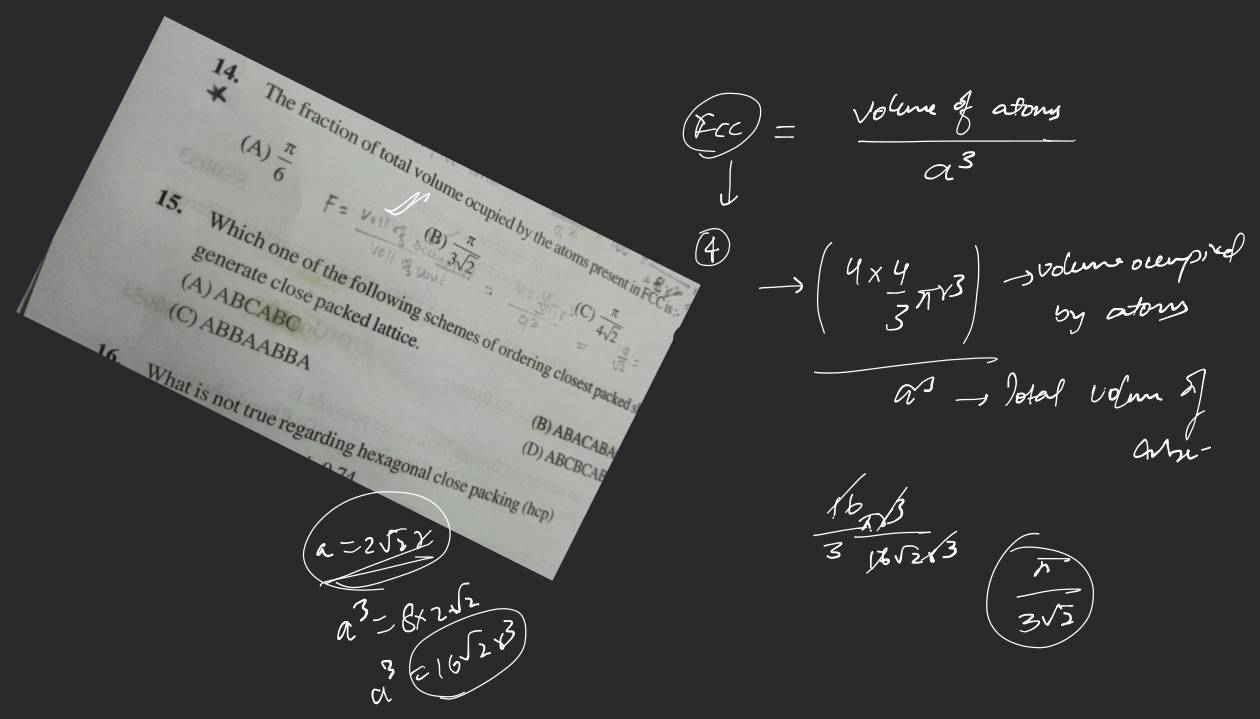 14.
The fraction of total volume ocupied by the atoms present in FCC is:-
(A) π/6
(B) π/3√2
(C) π/4√2
F =
15. Which one of the following schemes of ordering closest packed s
generate close packed lattice.
(A) ABCABC
(B) ABACABA
(C) ABBAABBA
(D) ABCBCAB
16. What is not true regarding hexagonal close packing (hcp)
0.74
FCC = volume of atoms / a³
④
→ (4 × 4/3 πr³) → volume occupied
by atoms
a³ → Total volum of
16πr³ / 3 16√2r³
π/3√2
a = 2√2r
a³ = 8×2√2
a³ = 16√2r³